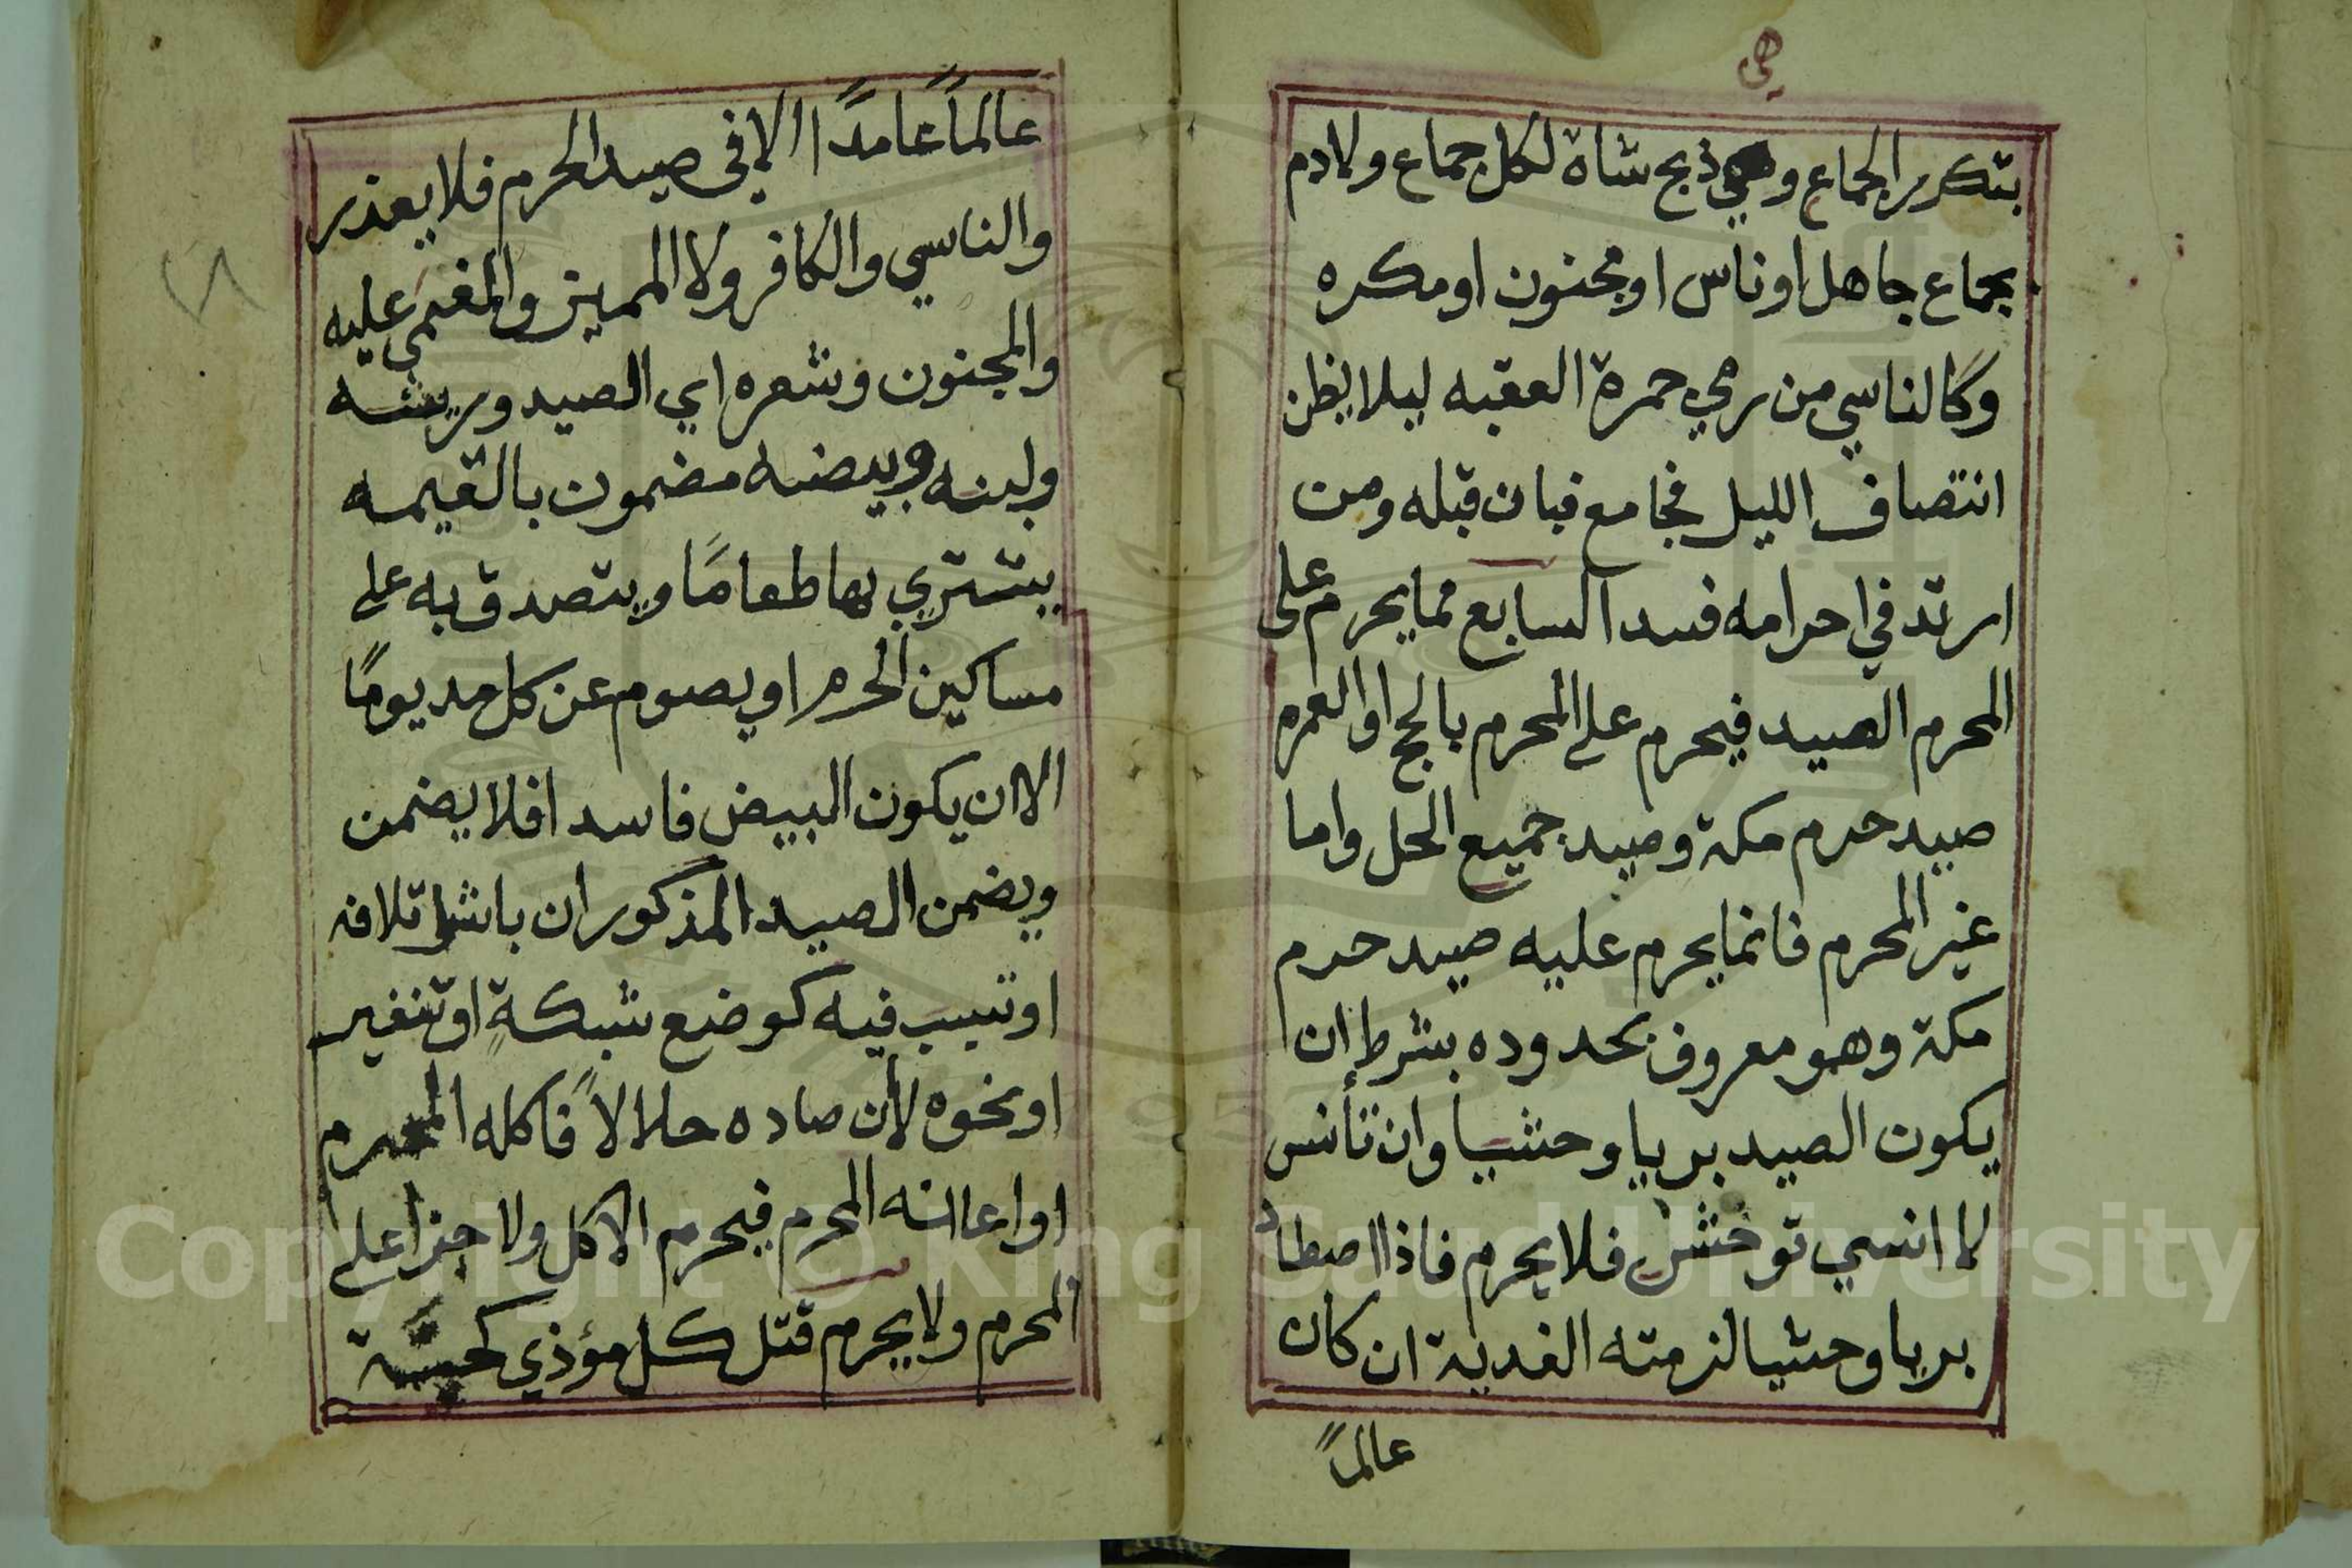 هي
بتكرير الجماع وهي ذبح شاة لكل جماع ولا دم
بجماع جاهل او ناس او مجنون او مكره
وكالناسي من رمي جمرة العقبه ليلا يظن
انتصاف الليل فجامع فبان قبله ومن
ارتد في احرامه فسد السابع مما يحرم على
المحرم الصيد فيحرم على المحرم بالحج او العمره
صيد حرم مكة وصيد جميع الحل واما
غير المحرم فانما يحرم عليه صيد حرم
مكة وهو معروف بحدوده بشرط ان
يكون الصيد بريا وحشيا وان تأنس
لا انسي توحش فلا يحرم فاذا اصطاد
بريا وحشيا لزمته الفدية ان كان
عالماً
عالماً عامدًا الا في صيد الحرم فلا يعذر
والناسي والكافر ولا المميز والمغمي عليه
والمجنون وشعره اي الصيد وريشه
ولبنه وبيضه مضمون بالقيمه
يشتري بها طعامًا ويتصدق به على
مساكين الحرم او يصوم عن كل مد يومًا
الا ان يكون البيض فاسدا فلا يضمن
ويضمن الصيد المذكور ان باشر تلافه
او تسبب فيه كوضع شبكةٍ او تنفير
او نحوه لأن صاده حلالاً فاكله المحرم
او اعانه المحرم فيحرم الاكل ولا جزا على
المحرم ولا يحرم قتل كل مؤذي كحية
٧٨
Copyright © King Saud University